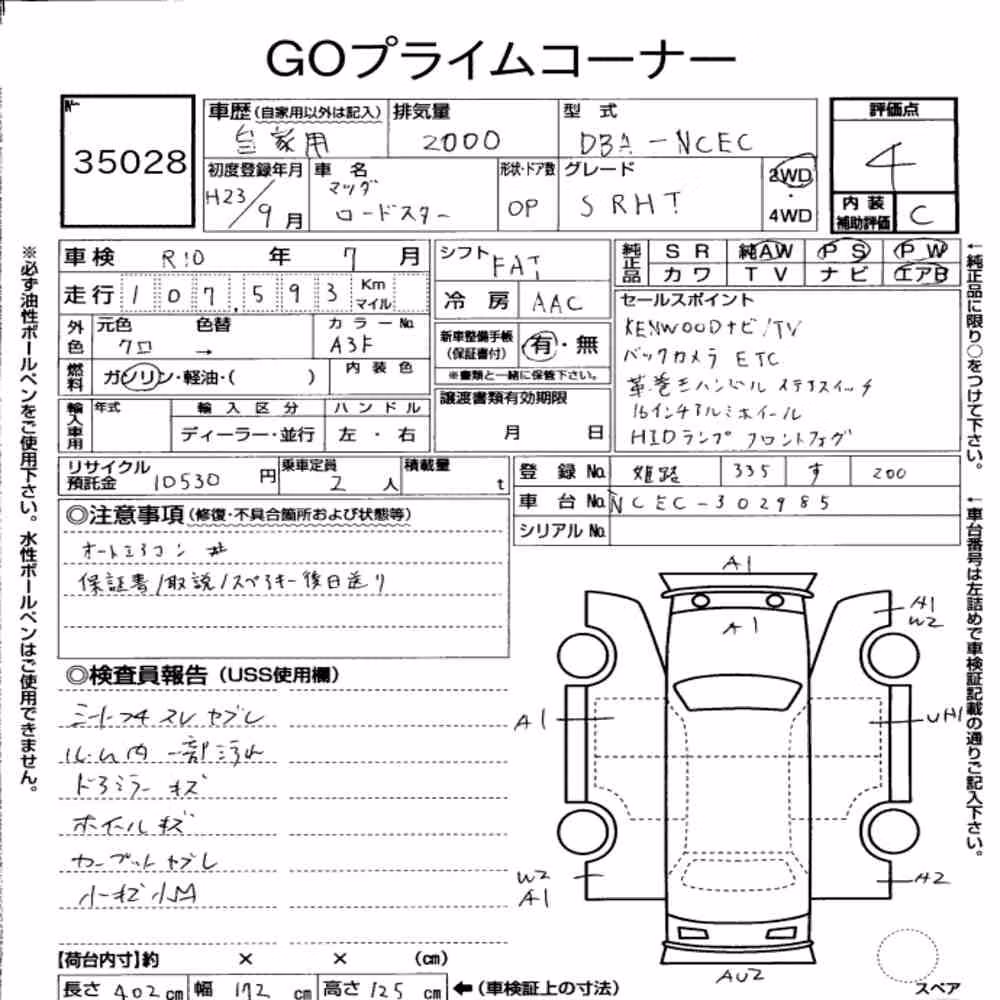 GOプライムコーナー
№
35028
車歴(自家用以外は記入) 排気量 型式
自家用 2000 DBA-NCEC
評価点
4
初度登録年月 車名 形状・ドア数 グレード
H23/9月 マツダ ロードスター OP SRHT
2WD
・
4WD
内装
補助評価 C
車検 R10年 7月
走行 107,593 Km
マイル
外色 元色 色替 カラーNo.
クロ → A3F
燃料 ガソリン・軽油・( ) 内装色
輸入車用 年式 輸入区分 ハンドル
ディーラー・並行 左・右
シフト FAT
冷房 AAC
新車整備手帳
(保証書付) 有・無
※書類と一緒に保管下さい。
譲渡書類有効期限
月 日
純正品 SR 純AW PS PW
カワ TV ナビ エアB
セールスポイント
KENWOODナビ/TV
バックカメラ ETC
革巻きハンドル ステアスイッチ
16インチアルミホイール
HIDランプ フロントフォグ
リサイクル
預託金 10530円 乗車定員 2人 積載量 t
登録No. 姫路 335 す 200
車台No. NCEC-302985
シリアルNo.
◎注意事項(修復・不具合箇所および状態等)
オートエアコン
保証書/取説/スペアキー後日送り
◎検査員報告(USS使用欄)
シートフチ スレ ヤブレ
ルーム内 一部汚れ
ドアミラー キズ
ホイール キズ
カーペット ヤブレ
小キズ 小凹
A1
A1
A1
W2
A1
UH1
W2
A1
A2
AU2
スペア
【荷台内寸】約 × × (cm)
長さ 402cm 幅 172cm 高さ 125cm ←(車検証上の寸法)
※必ず油性ボールペンをご使用下さい。水性ボールペンはご使用できません。
←純正品に限り○をつけて下さい。
←車台番号は左詰めで車検証記載の通りご記入下さい。